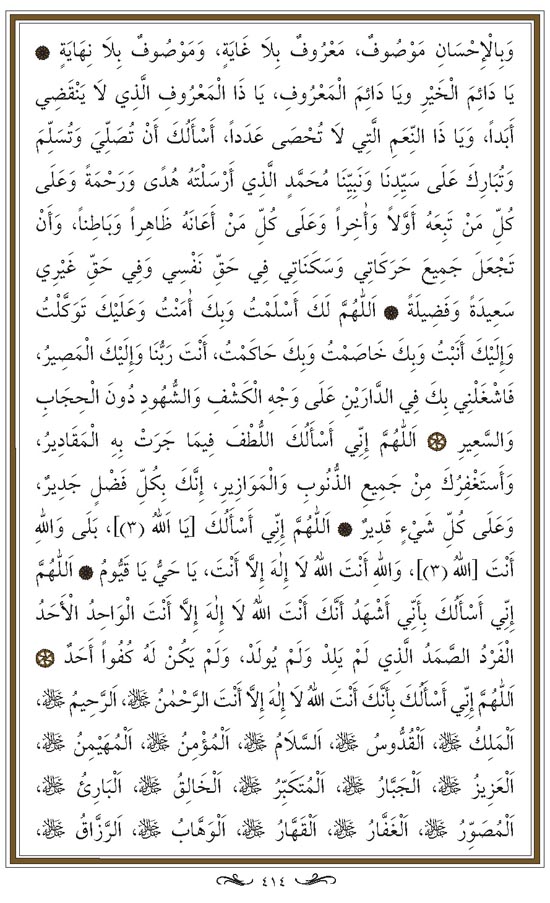 وَبِالْإِحْسَانِ مَوْصُوفٌ، مَعْرُوفٌ بِلَا غَايَةٍ، وَمَوْصُوفٌ بِلَا نِهَايَةٍ
يَا دَائِمَ الْخَيْرِ وَيَا دَائِمَ الْمَعْرُوفِ، يَا ذَا الْمَعْرُوفِ الَّذِي لَا يَنْقَضِي
أَبَداً، وَيَا ذَا النِّعَمِ الَّتِي لَا تُحْصَى عَدَداً، أَسْأَلُكَ أَنْ تُصَلِّيَ وَتُسَلِّمَ
وَتُبَارِكَ عَلَى سَيِّدِنَا وَنَبِيِّنَا مُحَمَّدٍ الَّذِي أَرْسَلْتَهُ هُدًى وَرَحْمَةً وَعَلَى
كُلِّ مَنْ تَبِعَهُ أَوَّلاً وَأٰخِراً وَعَلَى كُلِّ مَنْ أَعَانَهُ ظَاهِراً وَبَاطِناً، وَأَنْ
تَجْعَلَ جَمِيعَ حَرَكَاتِي وَسَكَنَاتِي فِي حَقِّ نَفْسِي وَفِي حَقِّ غَيْرِي
سَعِيدَةً وَفَضِيلَةً اَللّٰهُمَّ لَكَ أَسْلَمْتُ وَبِكَ أٰمَنْتُ وَعَلَيْكَ تَوَكَّلْتُ
وَإِلَيْكَ أَنَبْتُ وَبِكَ خَاصَمْتُ وَبِكَ حَاكَمْتُ، أَنْتَ رَبُّنَا وَإِلَيْكَ الْمَصِيرُ،
فَاشْغَلْنِي بِكَ فِي الدَّارَيْنِ عَلَى وَجْهِ الْكَشْفِ وَالشُّهُودِ دُونَ الْحِجَابِ
وَالسَّعِيرِ اَللّٰهُمَّ إِنِّي أَسْأَلُكَ اللُّطْفَ فِيمَا جَرَتْ بِهِ الْمَقَادِيرُ،
وَأَسْتَغْفِرُكَ مِنْ جَمِيعِ الذُّنُوبِ وَالْمَوَازِيرِ، إِنَّكَ بِكُلِّ فَضْلٍ جَدِيرٌ،
وَعَلَى كُلِّ شَيْءٍ قَدِيرٌ اَللّٰهُمَّ إِنِّي أَسْأَلُكَ [يَا اَللهُ (٣)]، بَلَى وَاللهِ
أَنْتَ [اللهُ (٣)]، وَاللهِ أَنْتَ اللهُ لَا إِلٰهَ إِلَّا أَنْتَ، يَا حَيُّ يَا قَيُّومُ اَللّٰهُمَّ
إِنِّي أَسْأَلُكَ بِأَنِّي أَشْهَدُ أَنَّكَ أَنْتَ اللهُ لَا إِلٰهَ إِلَّا أَنْتَ الْوَاحِدُ الْأَحَدُ
الْفَرْدُ الصَّمَدُ الَّذِي لَمْ يَلِدْ وَلَمْ يُولَدْ، وَلَمْ يَكُنْ لَهُ كُفُواً أَحَدٌ
اَللّٰهُمَّ إِنِّي أَسْأَلُكَ بِأَنَّكَ أَنْتَ اللهُ لَا إِلٰهَ إِلَّا أَنْتَ الرَّحْمٰنُ ﷻ، اَلرَّحِيمُ ﷻ،
اَلْمَلِكُ ﷻ، اَلْقُدُّوسُ ﷻ، اَلسَّلَامُ ﷻ، اَلْمُؤْمِنُ ﷻ، اَلْمُهَيْمِنُ ﷻ،
اَلْعَزِيزُ ﷻ، اَلْجَبَّارُ ﷻ، اَلْمُتَكَبِّرُ ﷻ، اَلْخَالِقُ ﷻ، اَلْبَارِئُ ﷻ،
اَلْمُصَوِّرُ ﷻ، اَلْغَفَّارُ ﷻ، اَلْقَهَّارُ ﷻ، اَلْوَهَّابُ ﷻ، اَلرَّزَّاقُ ﷻ،
٤١٤